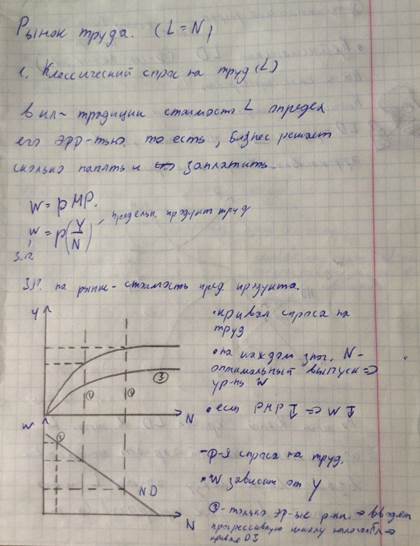 Рынок труда. (L=N)
1. Классический спрос на труд (L)
в кл- традиции стоимость L определ
его эфф-тью, то есть, бизнес решает
сколько платить и заплатить.
W = pMP.
W = p(Y/N), предельн. продукт труд
З.П.
З.П. на рынке - стоимость пред продукта.
Y
• кривая спроса на
труд
• на каждом знач. N -
оптимальный выпуск =>
ур-нь W
③
① ①
N
• если PMP ↓ => W ↓
W
①
ND
N
- Ф-я спроса на труд.
• W зависит от Y
①- только эф-ые => вводят
прогрессивную шкалу =>
кривая